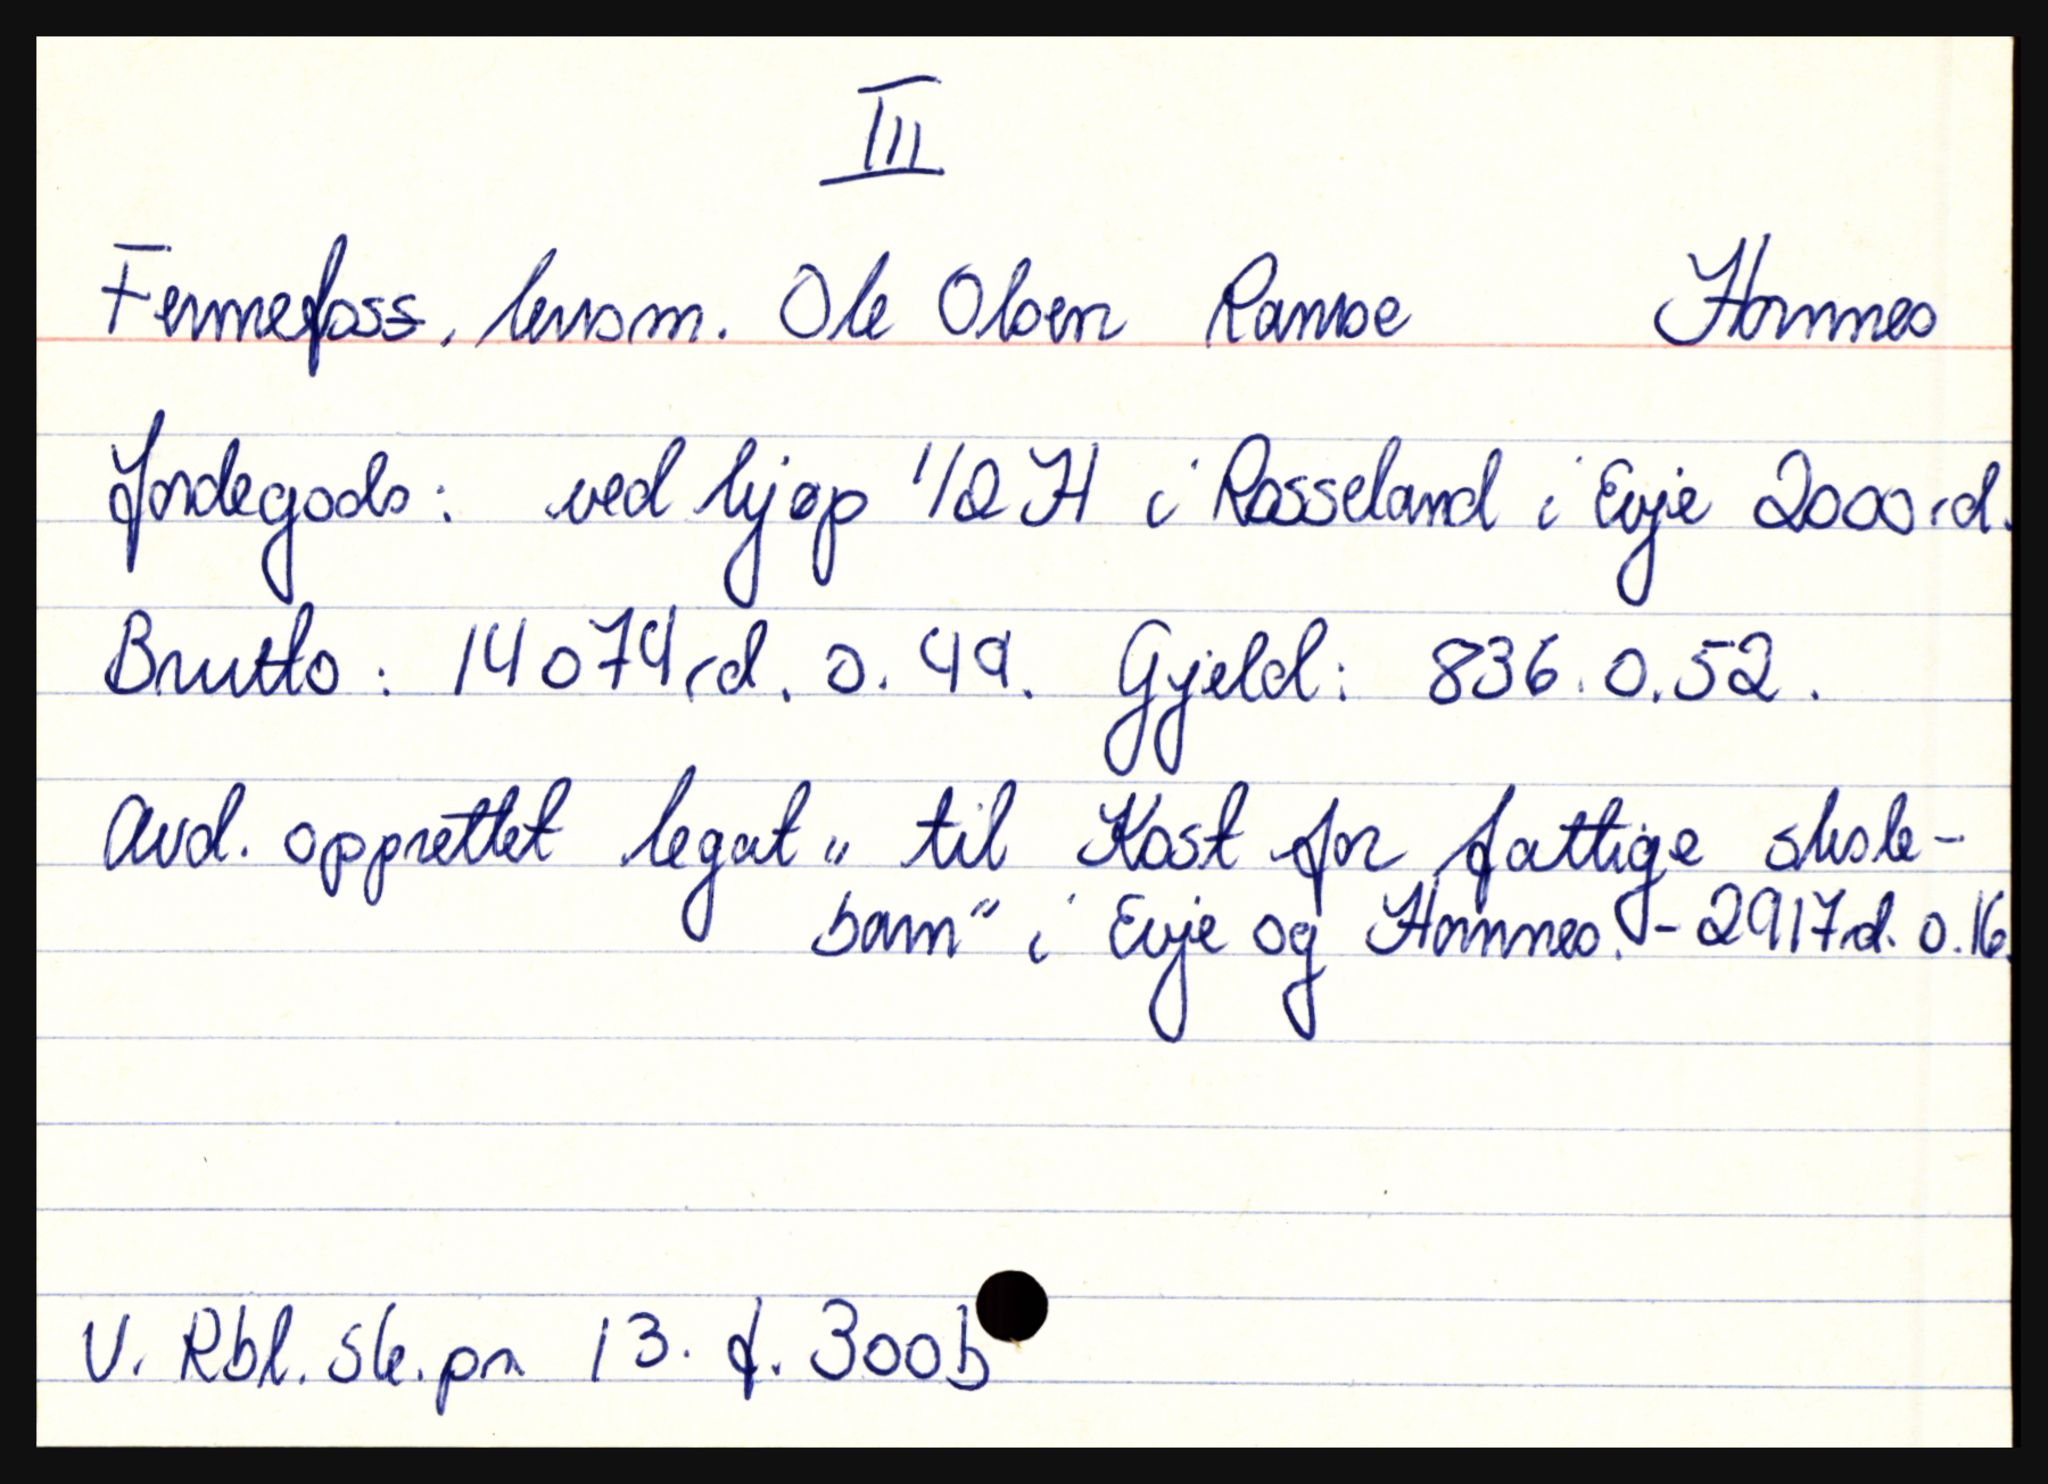 III
Fennefoss, lensm. Ole Olsen Ramse Hornnes
Jordegods: ved kjøp 1/2 H i Rosseland i Evje 2000 rd.
Brutto: 14074 rd. 0. 49. Gjeld: 836. 0. 52.
Avd. opprettet legat „ til Kost for fattige skole-
barn" i Evje og Hornnes. - 2917 rd. 0. 16.
V. Rbl. sk. pr. 13. f. 300b